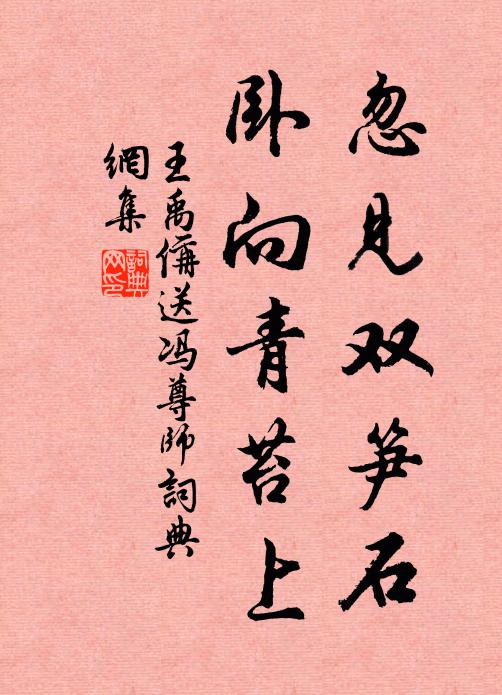 忽见双笋石
卧向青苔上
王禹偁送冯尊师詞典
網集
詞典
网印